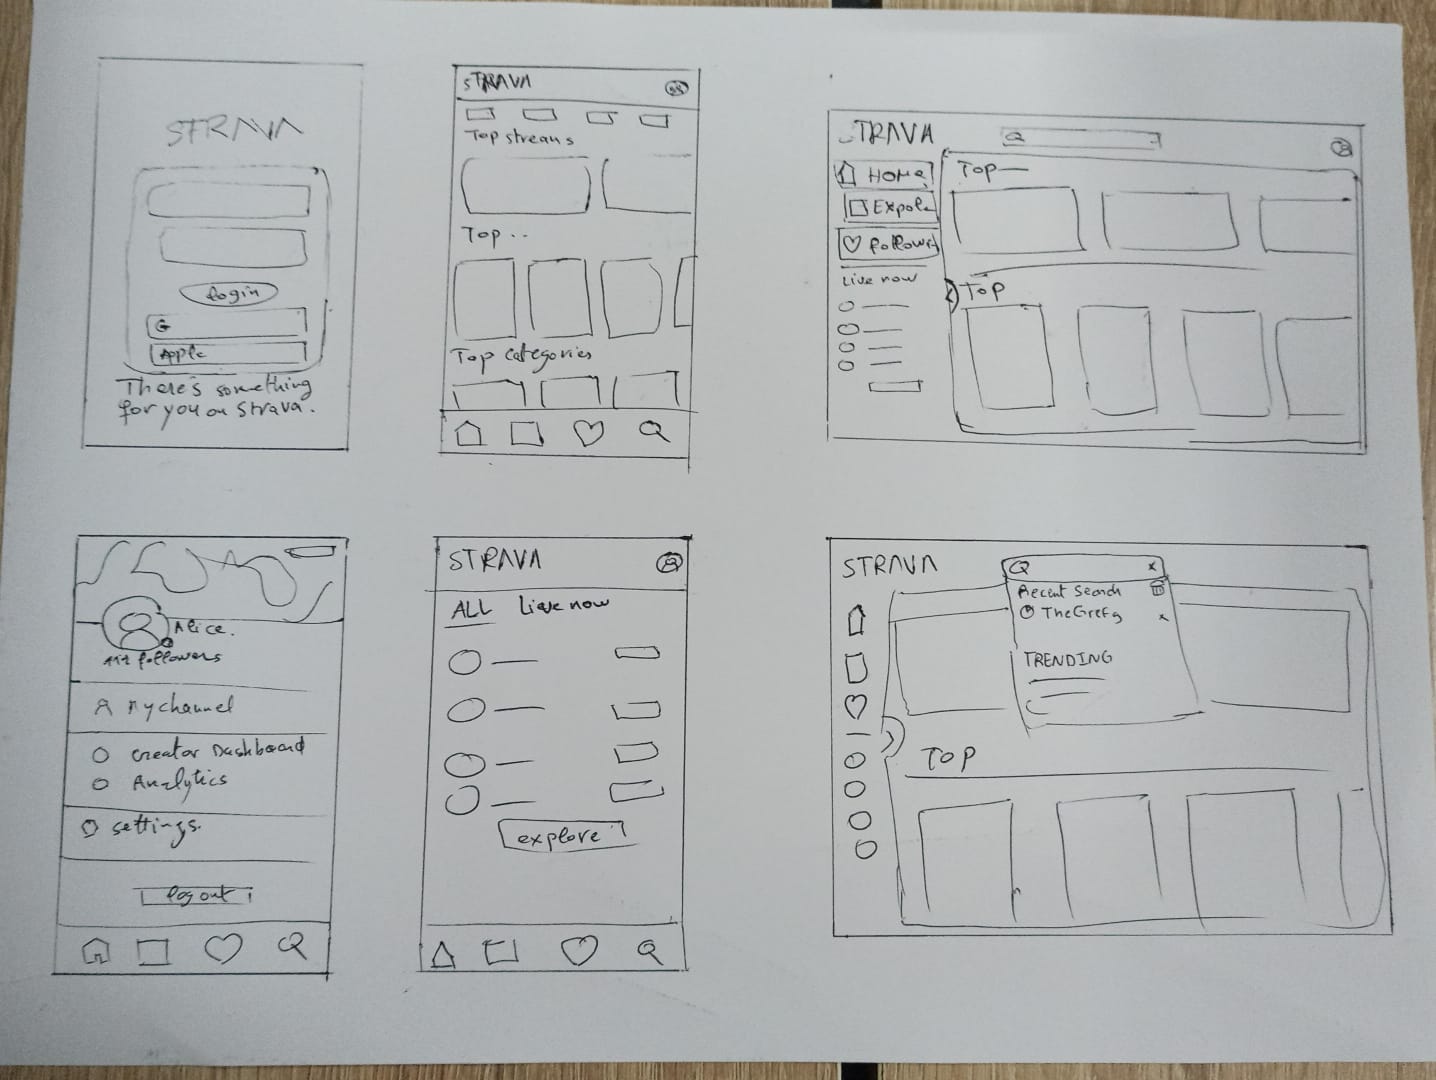 STRAVA
Login
G
Apple
There's something
for you on Strava.
STRAVA
Top streams
Top ..
Top categories
STRAVA
Home
Expole
follow
Live now
Top
Top
Alice.
followers
My channel
Creator Dashboard
Analytics
settings.
log out
STRAVA
ALL Live now
explore
STRAVA
Recent Search
TheGrefg
x
x
TRENDING
TOP